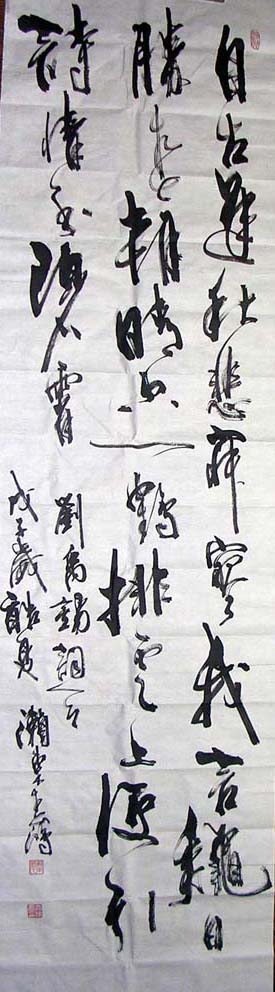 自古逢秋悲寂寥我言龝日
勝春朝晴空一鶴排雲上便引
詩情到碧霄
劉禹錫
戊子歲酷夏